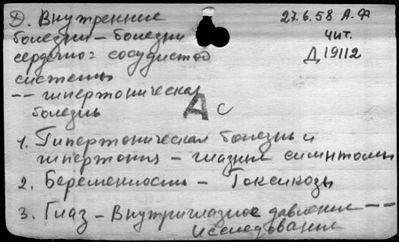 Д. Внутренние
болезни - болезни
сердечно = сосудистой
системы
-- гипертоническая
болезнь
27.6.58 А.Ф
чит.
Д 19112
А с
1. Гипертоническая болезнь и
гипертония - глазные симптомы
2. Беременность - Токсикозы
3. Глаз - Внутриглазное давление --
исследование